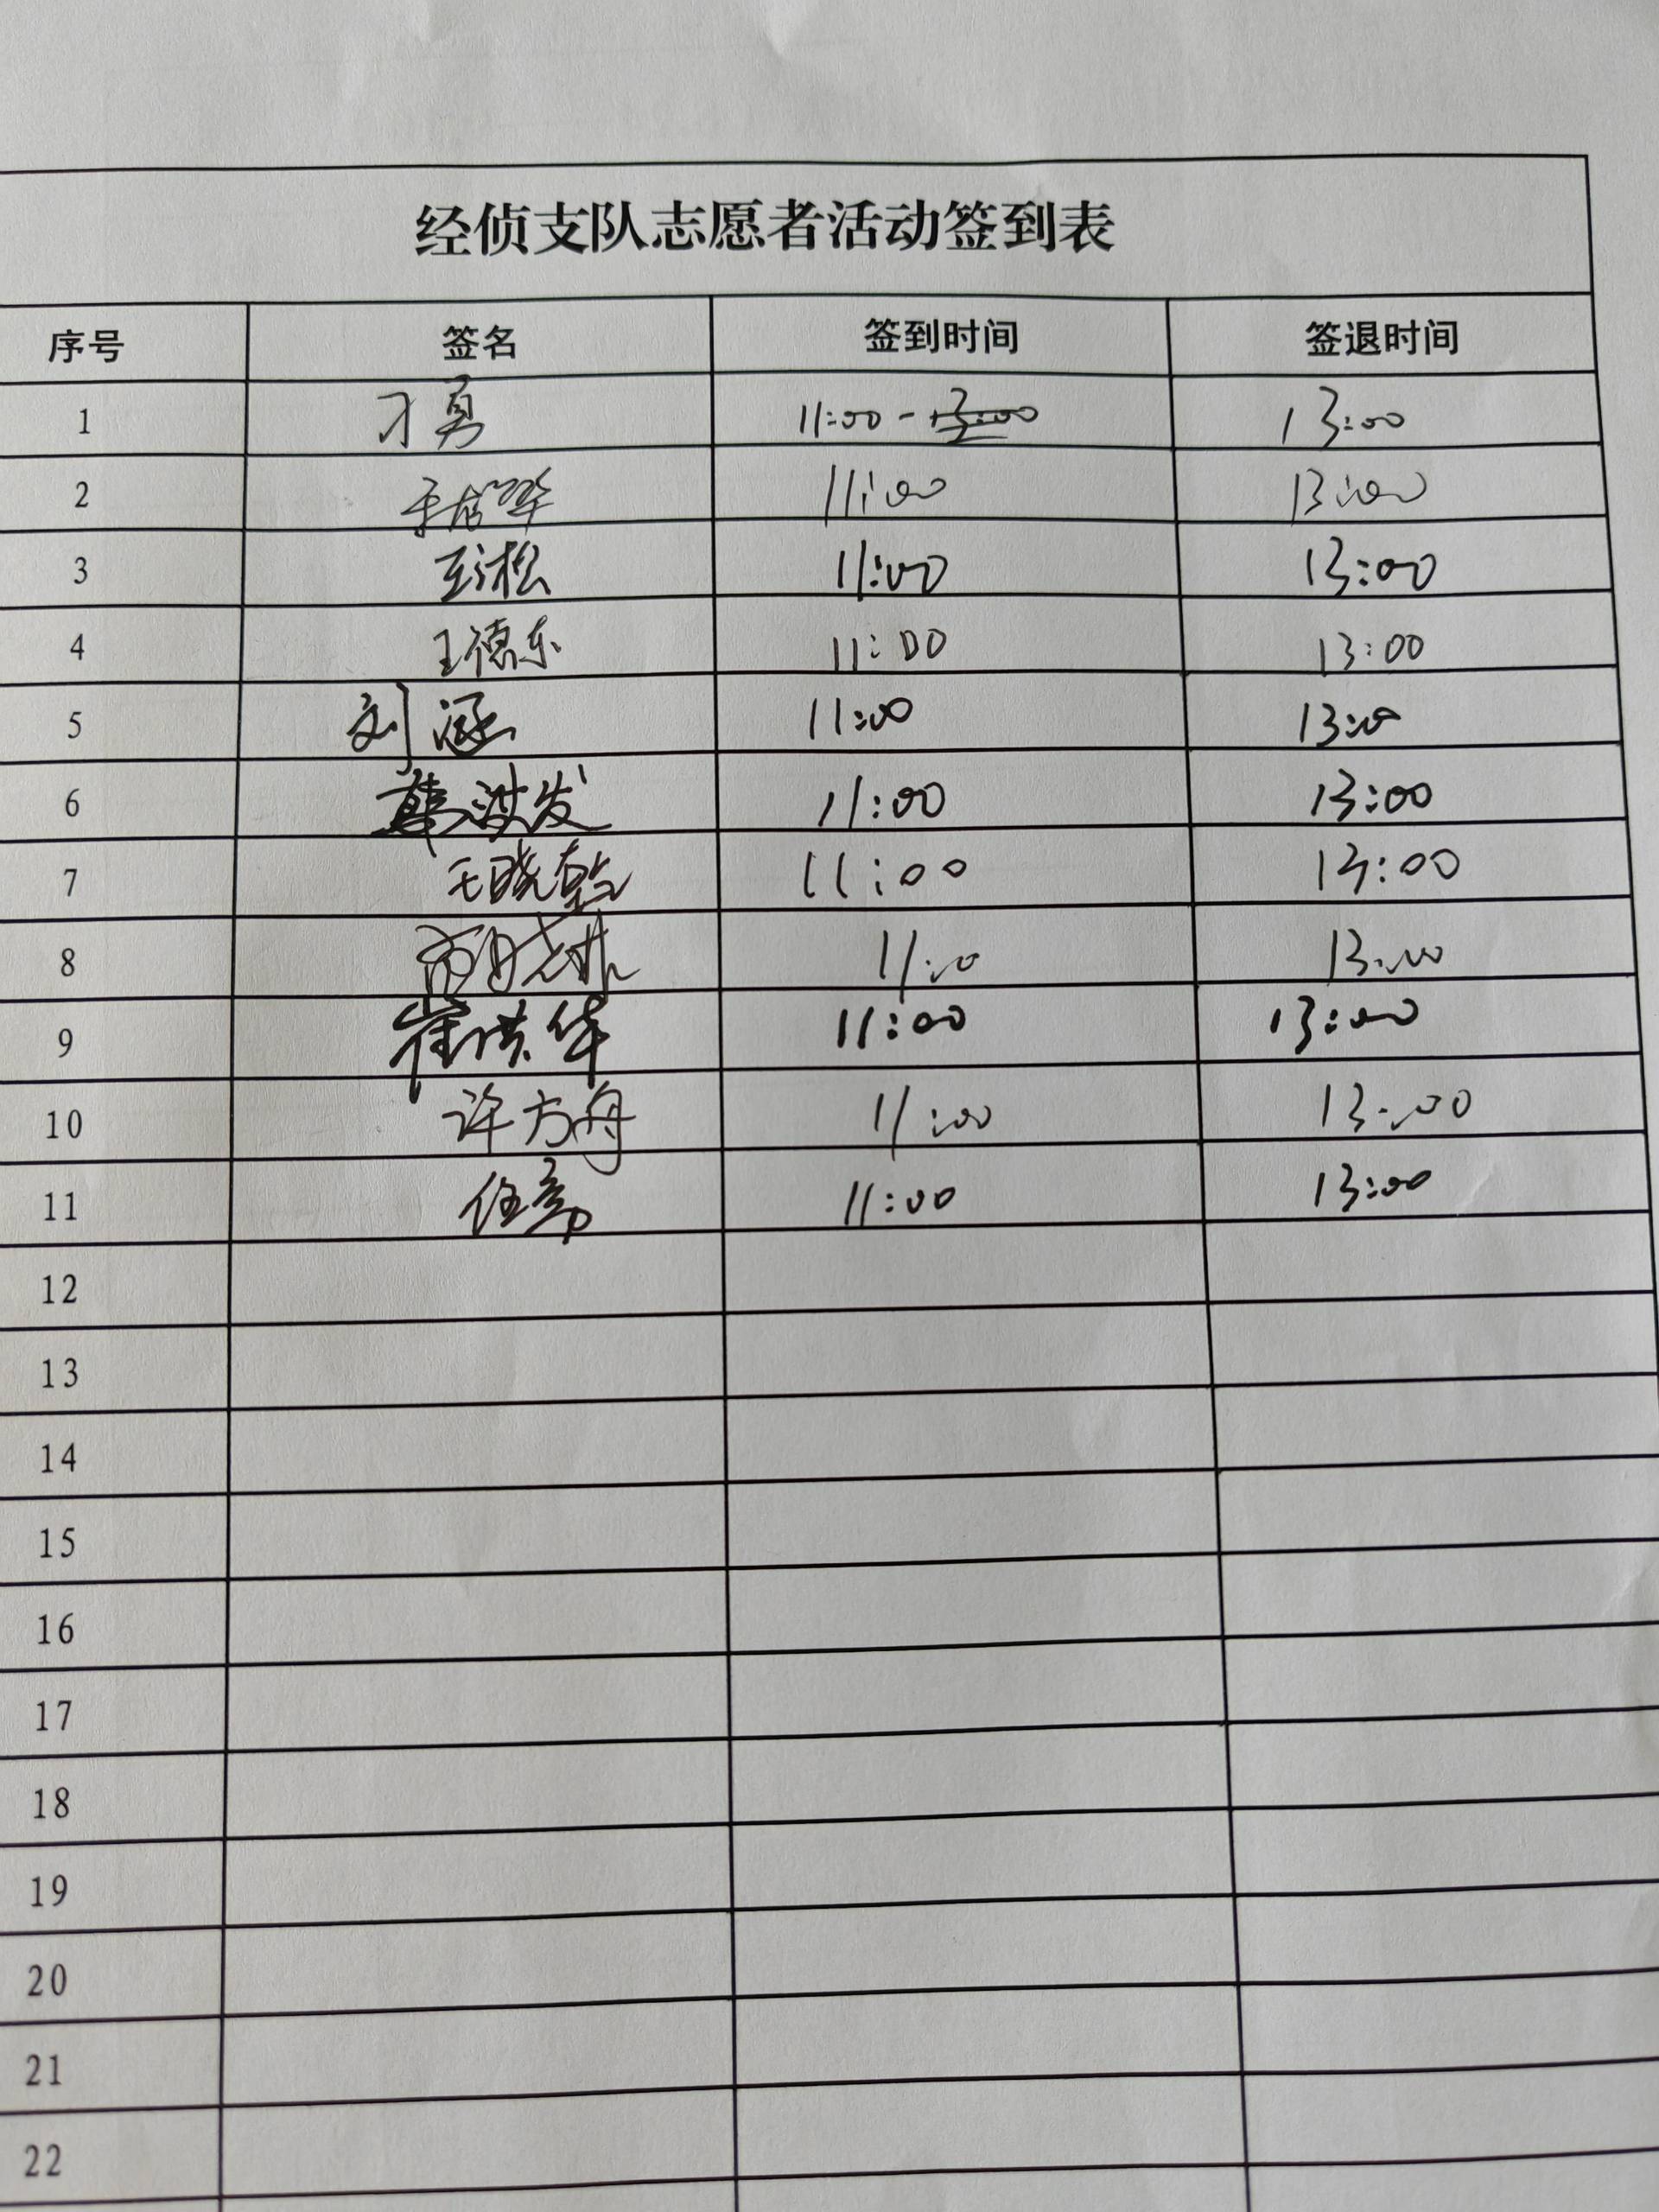 经侦支队志愿者活动签到表
序号 签名 签到时间 签退时间
1 刁勇 11:00 - 13:00 13:00
2 11:00 13:00
3 11:00 13:00
4 王德东 11:00 13:00
5 刘涵 11:00 13:00
6 11:00 13:00
7 王晓乾 11:00 13:00
8 11:00 13:00
9 崔洪华 11:00 13:00
10 许方舟 11:00 13:00
11 任亮 11:00 13:00
12
13
14
15
16
17
18
19
20
21
22